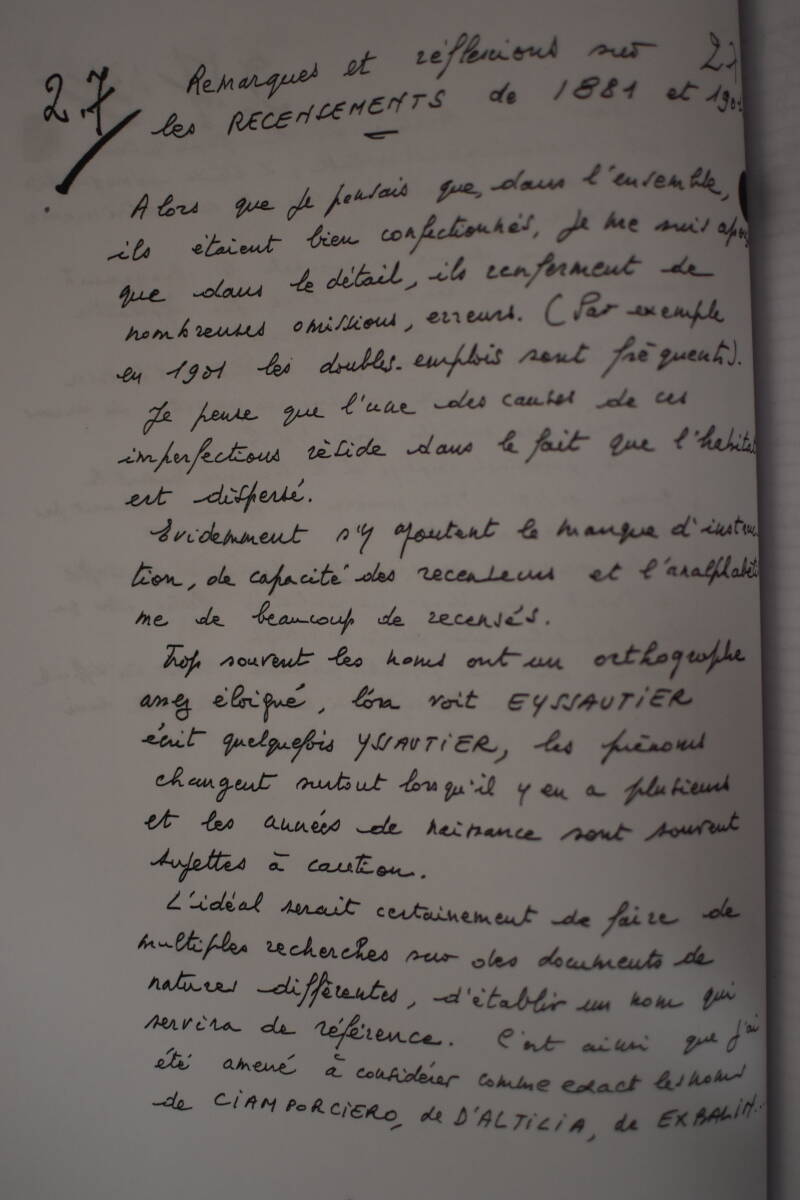 2.7 Remarques et réflexions sur 2.7
les RECENSEMENTS de 1881 et 1901
Alors que je pensais que, dans l'ensemble,
ils étaient bien confectionnés, je me suis
que dans le détail, ils renferment de
nombreuses omissions, erreurs. (Par exemple
en 1901 les doubles-emplois sont fréquents).
Je pense que l'une des causes de ces
imperfections réside dans le fait que l'habitat
est dispersé.
Evidemment s'y ajoutent le manque d'instruc
tion, de capacité des recenseurs et l'analphabétis
me de beaucoup de recensés.
Trop souvent les noms ont un orthographe
assez éloigné, l'on voit EYSSAUTIER
écrit quelquefois YSSAUTIER, les prénoms
changent surtout lorsqu'il y en a plusieurs
et les années de naissance sont souvent
sujettes à caution.
L'idéal serait certainement de faire de
multiples recherches sur des documents de
natures différentes, d'établir un nom qui
servira de référence. C'est ainsi que j'ai
été amené à considérer comme exact les noms
de CIAMPORCIERO, de D'ALTILIA, de EXBALIN..